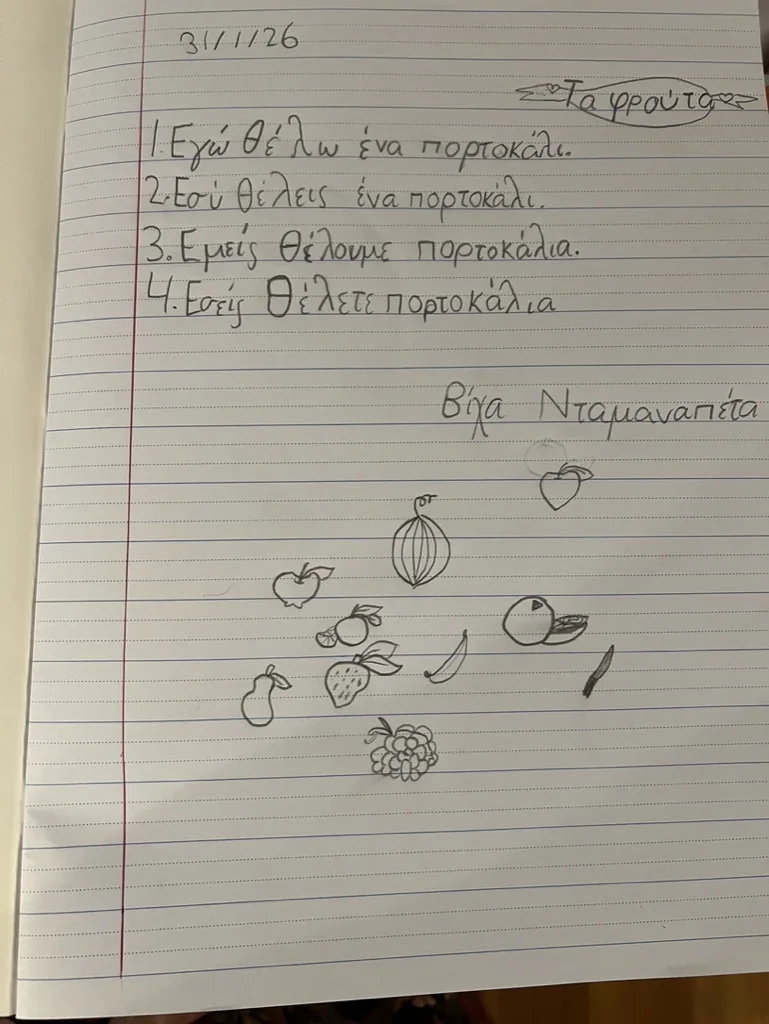 31/1/26
Τα φρούτα
1. Εγώ θέλω ένα πορτοκάλι.
2. Εσύ θέλεις ένα πορτοκάλι.
3. Εμείς θέλουμε πορτοκάλια.
4. Εσείς θέλετε πορτοκάλια
Βίχα Νταμαναπέτα